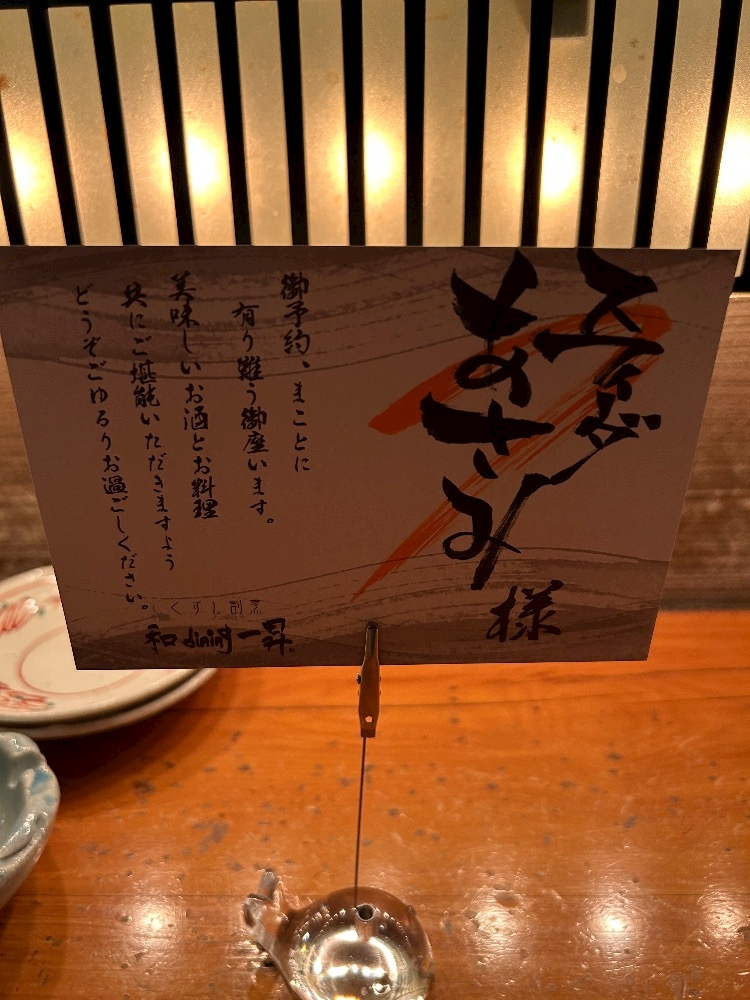 あさみ
様
御予約、まことに
有り難う御座います。
美味しいお酒とお料理
共にご堪能いただきますよう
どうぞごゆるりお過ごしください。
くずし割烹
和dining一昇